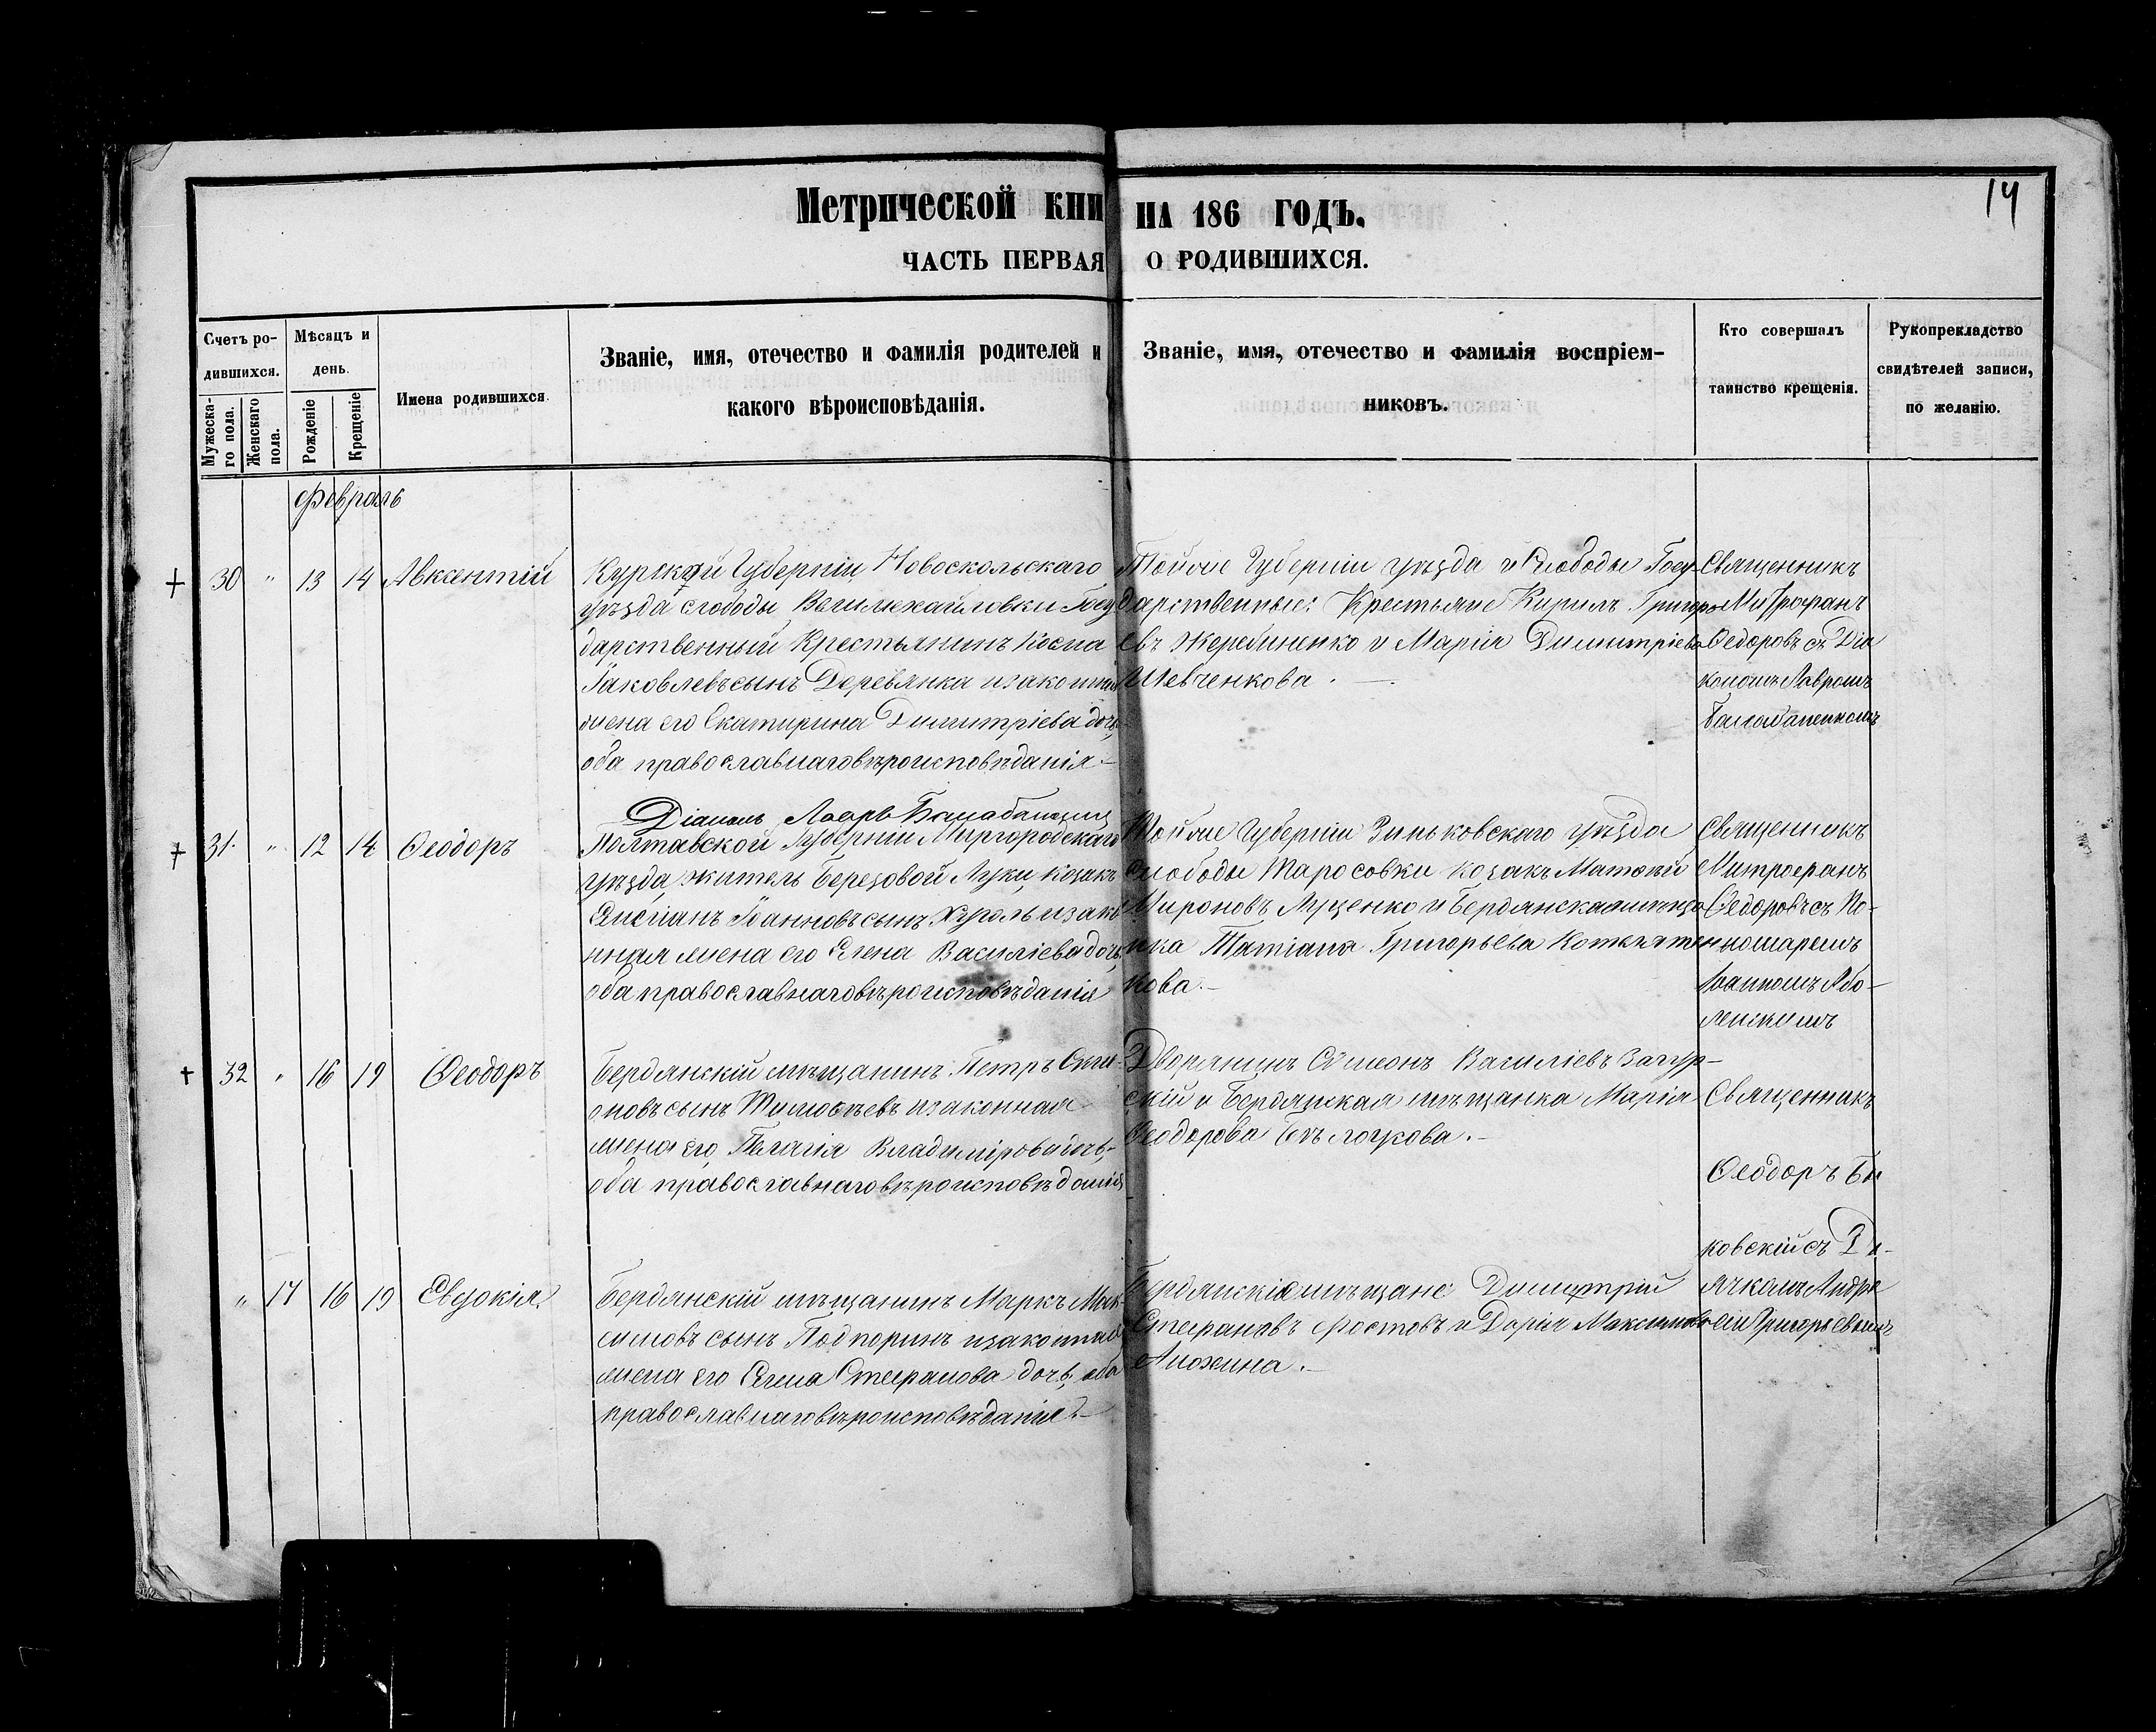 14
Метрической кни
НА 186 ГОДЪ.
ЧАСТЬ ПЕРВАЯ
О РОДИВШИХСЯ.
Счетъ ро-
дившихся.
Мужеска-
го пола.
Женскаго
пола.
Мѣсяцъ и
день.
Рожденіе
Крещеніе
Имена родившихся.
Званіе, имя, отечество и фамилія родителей и
какого вѣроисповѣданія.
Званіе, имя, отечество и фамилія воспріем-
никовъ.
Кто совершалъ
таинство крещенія.
Рукоприкладство
свидѣтелей записи,
по желанію.
Февраль
30 " 13 14 Авксентій
Курской Губерніи Новоскольскаго
уѣзда слободы Госу
дарственный Крестьянинъ Косма
Іаковлевъ сынъ Деревянка и законная
жена его Екатирина Димитріева дочь
оба православнаго вѣроисповѣданія
Тойже Губерніи уѣзда и Слободы Госу-
дарственные: Крестьяне Кирилъ Григорь
евъ Жеребиненко и Марія Димитріева
Шевченкова.
Священникъ
Митрофанъ
Ѳедоровъ съ Діа
кономъ Лавромъ
31. " 12 14 Ѳеодоръ
Діаконъ Лавръ
Полтавской Губерніи Миргородскаго
уѣзда, житель Березовой Луки, козакъ
Іоанновъ сынъ и зако
нная жена его Елена Василіева дочь,
оба православнаго вѣроисповѣданія
Тойже Губерніи Зиньковскаго уѣзда
Слободы Таросовки козакъ Матѳѣй
Мироновъ Луценко и Бердянская мѣща
нка Татіана Григорьева
кова.
Священникъ
Митрофанъ
Ѳедоровъ съ По-
номаремъ
Іоанномъ Або-
ленскимъ
32 " 16 19 Ѳеодоръ
Бердянскій мѣщанинъ Петръ
оновъ сынъ Тимоѳѣевъ и законная
жена его Пелагія Владимірова дочь,
оба православнаго вѣроисповѣданія
Дворянинъ Сѵмеонъ Василіевъ Загур-
скій и Бердянская мѣщанка Марія
Ѳеодорова
Священникъ
Ѳеодоръ Бы
ковскій съ Дь-
ячкомъ Андре
емъ Григорьевымъ
" 17 16 19 Евдокія
Бердянскій мѣщанинъ Маркъ Мак-
симовъ сынъ Подпоринъ и законная
жена его Елена Стефанова дочь, оба
православнаго вѣроисповѣданія.
Бердянскіе мѣщане Димитрій
Стефановъ Фостовъ и Дарія Максимова
Анохина.